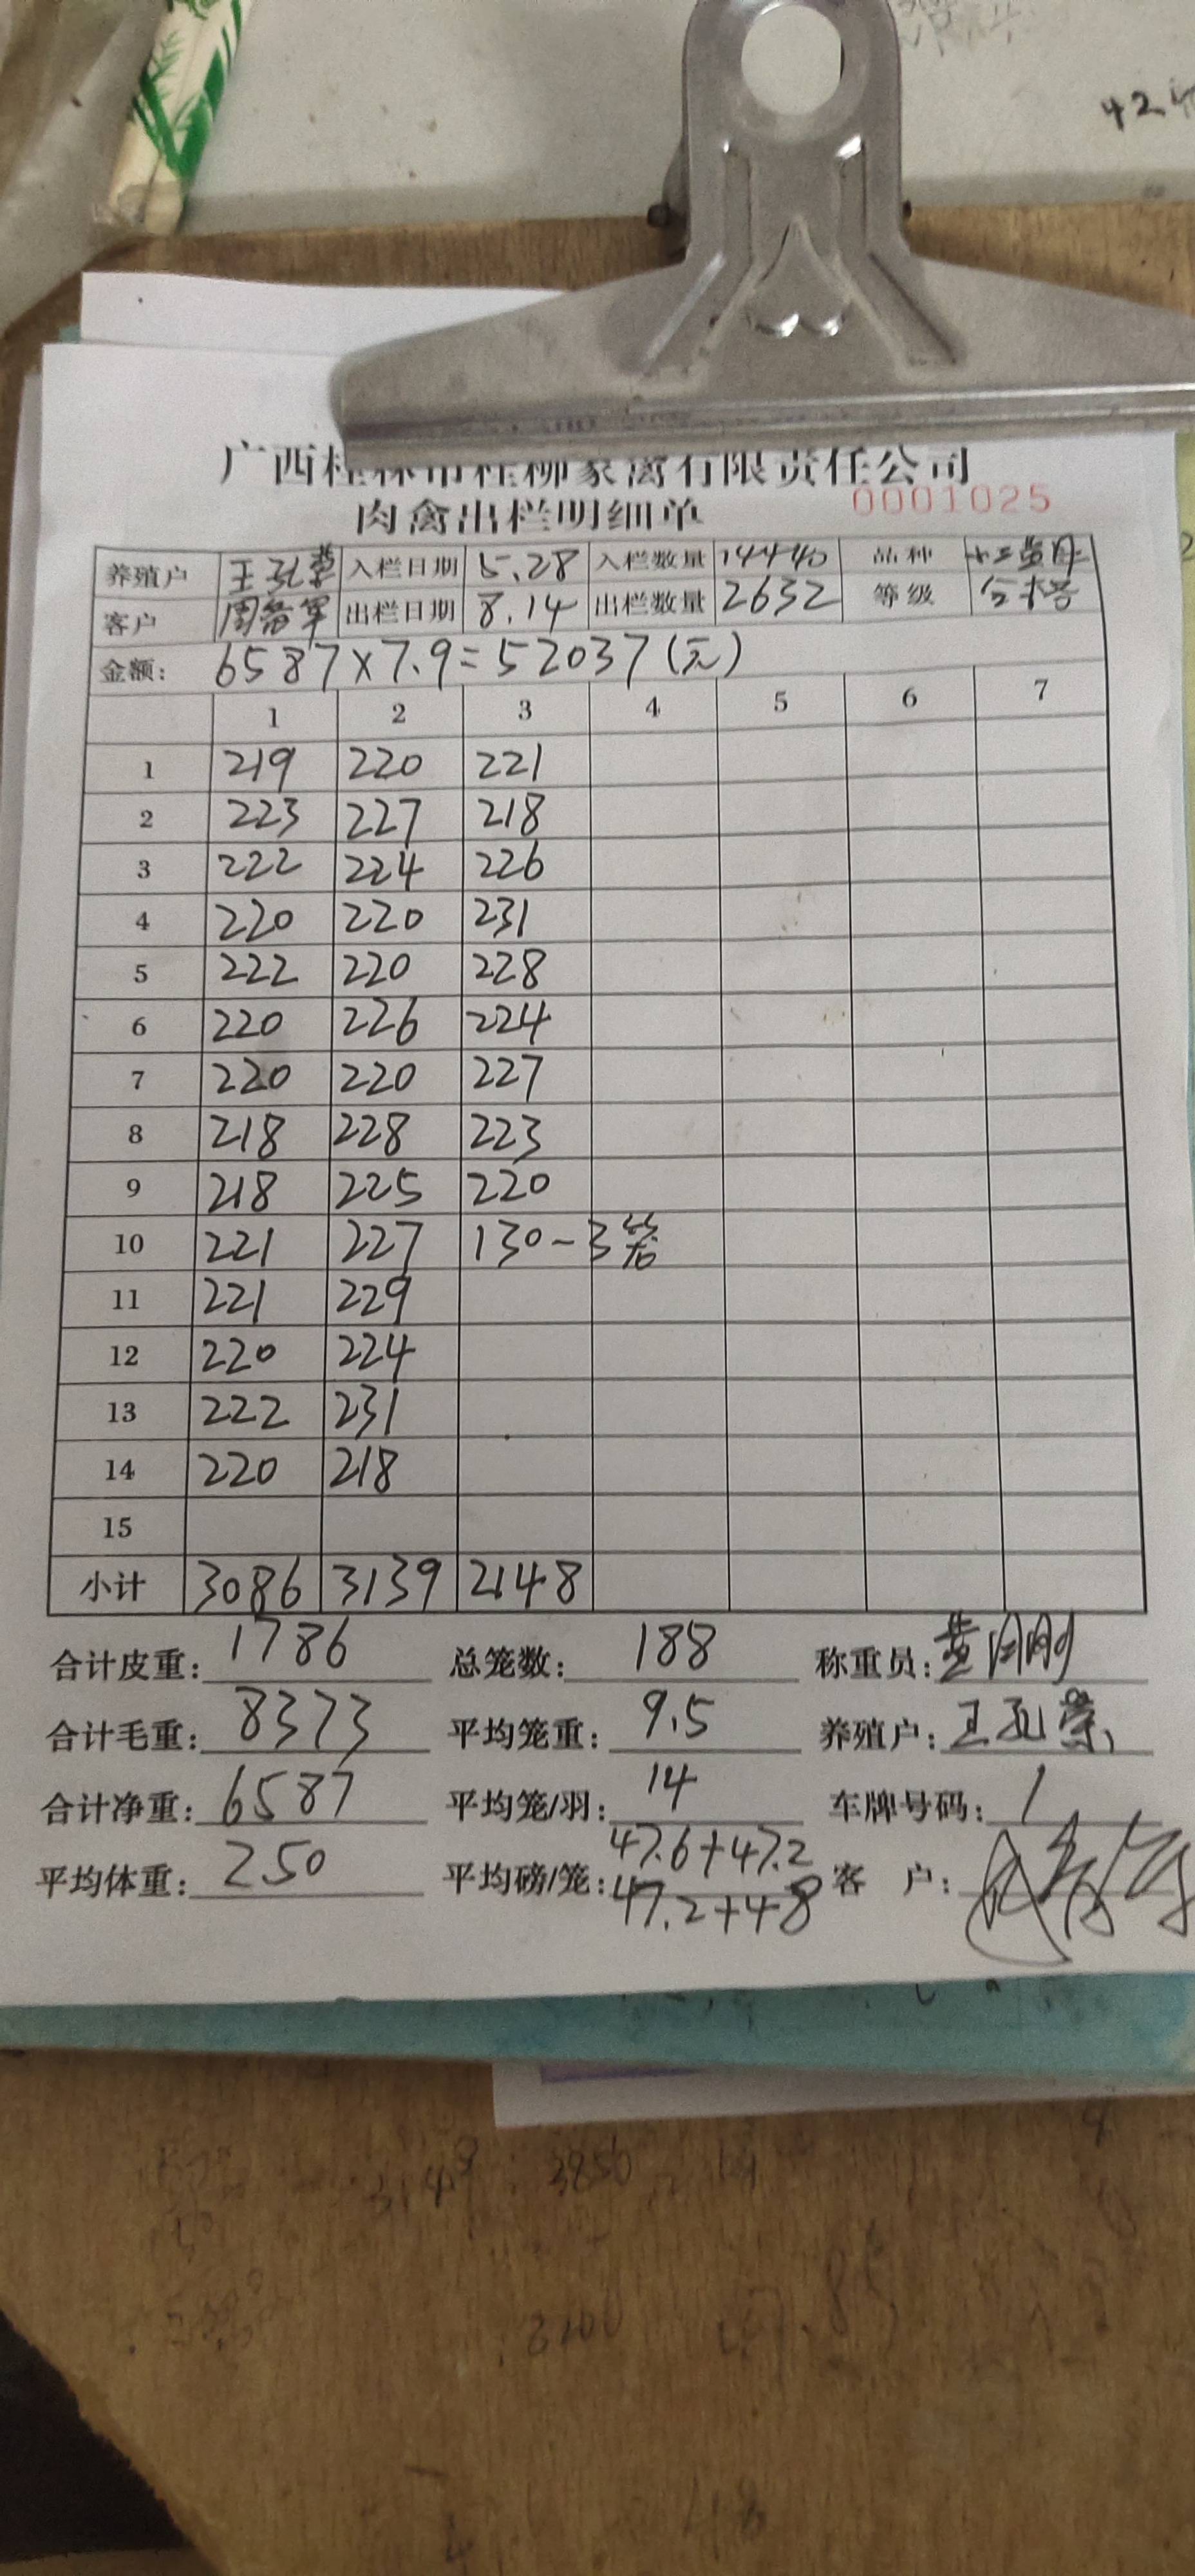 42.
广西桂林市桂柳家禽有限责任公司
肉禽出栏明细单 0001025
养殖户 王孔荣 入栏日期 5.28 入栏数量 14440 品种
客户 出栏日期 8.14 出栏数量 2632 等级 合格
金额: 6587×7.9=52037(元)
1 2 3 4 5 6 7
1 219 220 221
2 223 227 218
3 222 224 226
4 220 220 231
5 222 220 228
6 220 226 224
7 220 220 227
8 218 228 223
9 218 225 220
10 221 227 130-3笼
11 221 229
12 220 224
13 222 231
14 220 218
15
小计 3086 3139 2148
合计皮重: 1786 总笼数: 188 称重员:
合计毛重: 8373 平均笼重: 9.5 养殖户: 王孔荣
合计净重: 6587 平均笼/羽: 14 车牌号码: 1
平均体重: 2.50 平均磅/笼: 47.6+47.2 客 户:
47.2+48
3850